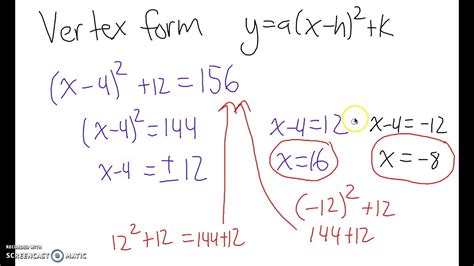 Vertex form y=a(x-h)²+k
(x-4)²+12=156
(x-4)²=144
x-4=±12
x-4=12
x=16
x-4=-12
x=-8
12²+12=144+12
(-12)²+12
144+12
RECORDED WITH
SCREENCAST-O-MATIC